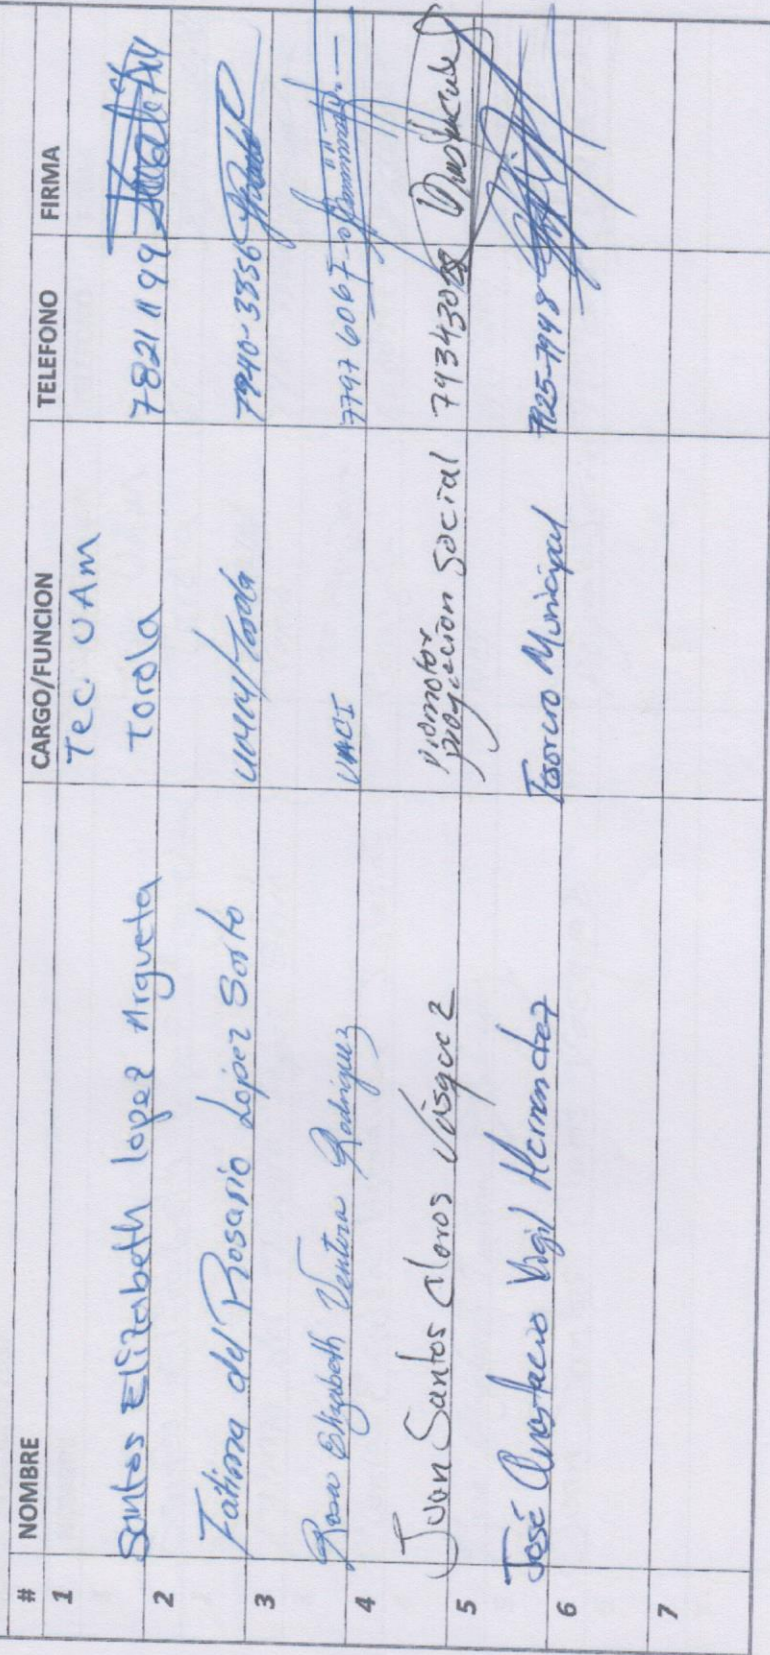 # NOMBRE CARGO/FUNCION TELEFONO FIRMA
1 Santos Elizabeth lopez Argueta Tec. UAM Torola 7821 1199
2 Fatima del Rosario Lopez Sorto Torola 7940-3356
3 Rosa Elizabeth Ventura Rodriguez UACI 7797 6067
4 Juan Santos Claros Vásquez promotor proyeccion social 793430
5 José Anastacio Vigil Hernandez Tesorero Municipal 7125-7948
6
7